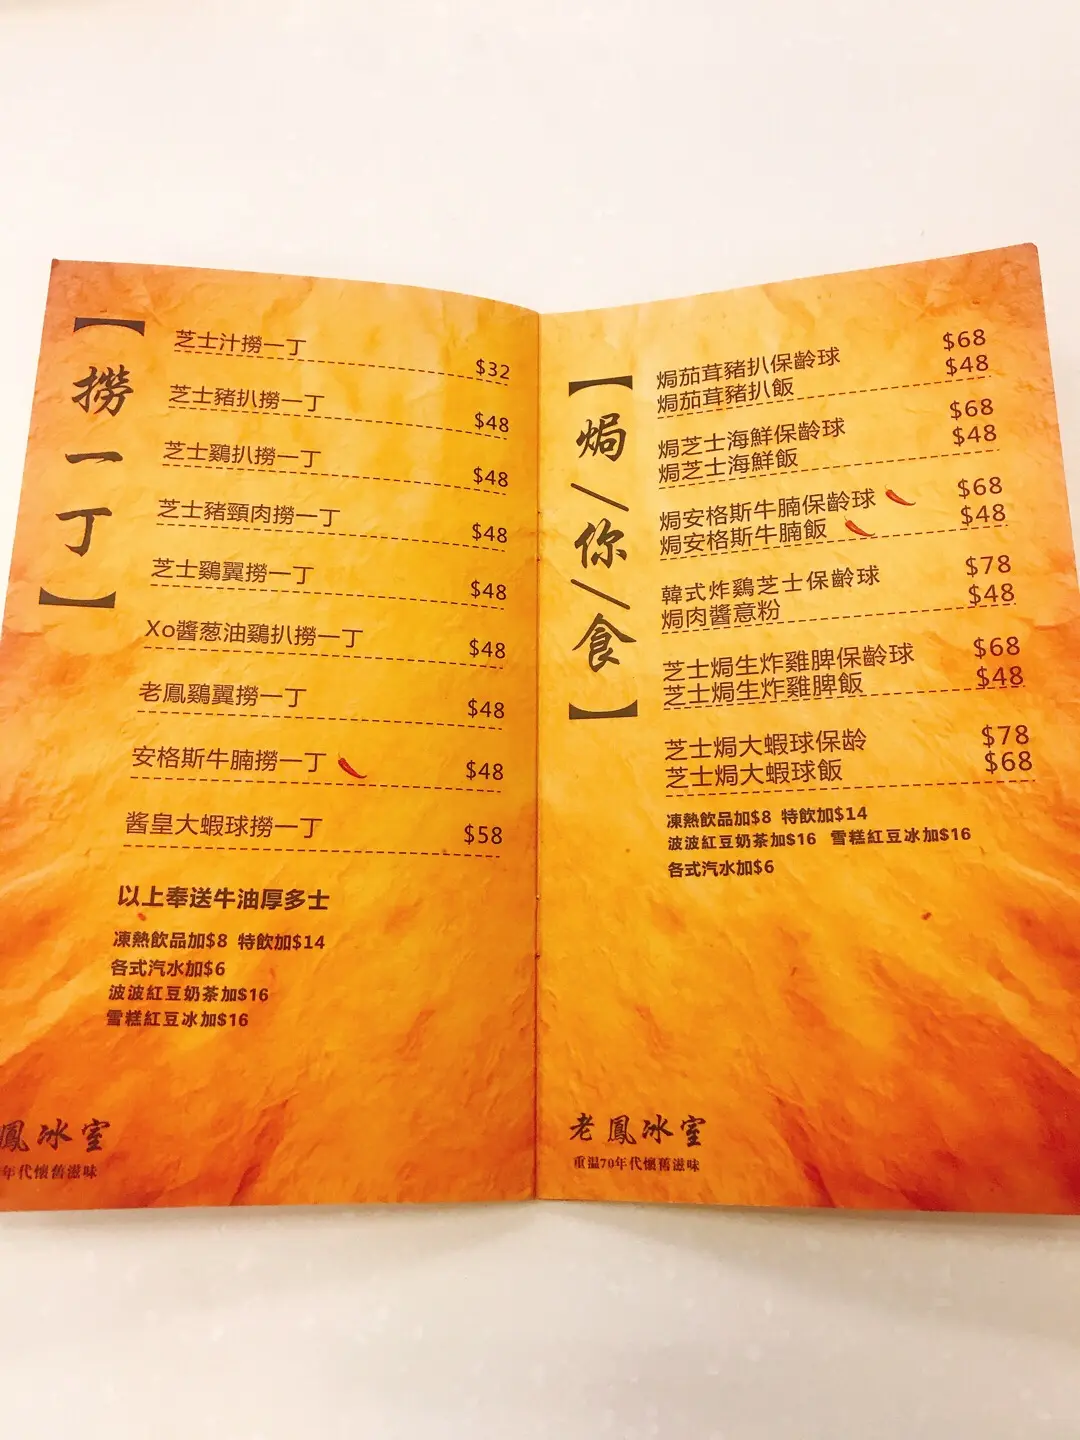 【撈一丁】
芝士汁撈一丁 $32
芝士豬扒撈一丁 $48
芝士鷄扒撈一丁 $48
芝士豬頸肉撈一丁 $48
芝士鷄翼撈一丁 $48
Xo醬葱油鷄扒撈一丁 $48
老鳳鷄翼撈一丁 $48
安格斯牛腩撈一丁 $48
醬皇大蝦球撈一丁 $58
以上奉送牛油厚多士
凍熱飲品加$8 特飲加$14
各式汽水加$6
波波紅豆奶茶加$16
雪糕紅豆冰加$16
鳳冰室
年代懷舊滋味
【焗\你\食】
焗茄茸豬扒保齡球 $68
焗茄茸豬扒飯 $48
焗芝士海鮮保齡球 $68
焗芝士海鮮飯 $48
焗安格斯牛腩保齡球 $68
焗安格斯牛腩飯 $48
韓式炸鷄芝士保齡球 $78
焗肉醬意粉 $48
芝士焗生炸雞脾保齡球 $68
芝士焗生炸雞脾飯 $48
芝士焗大蝦球保龄 $78
芝士焗大蝦球飯 $68
凍熱飲品加$8 特飲加$14
波波紅豆奶茶加$16 雪糕紅豆冰加$16
各式汽水加$6
老鳳冰室
重温70年代懷舊滋味